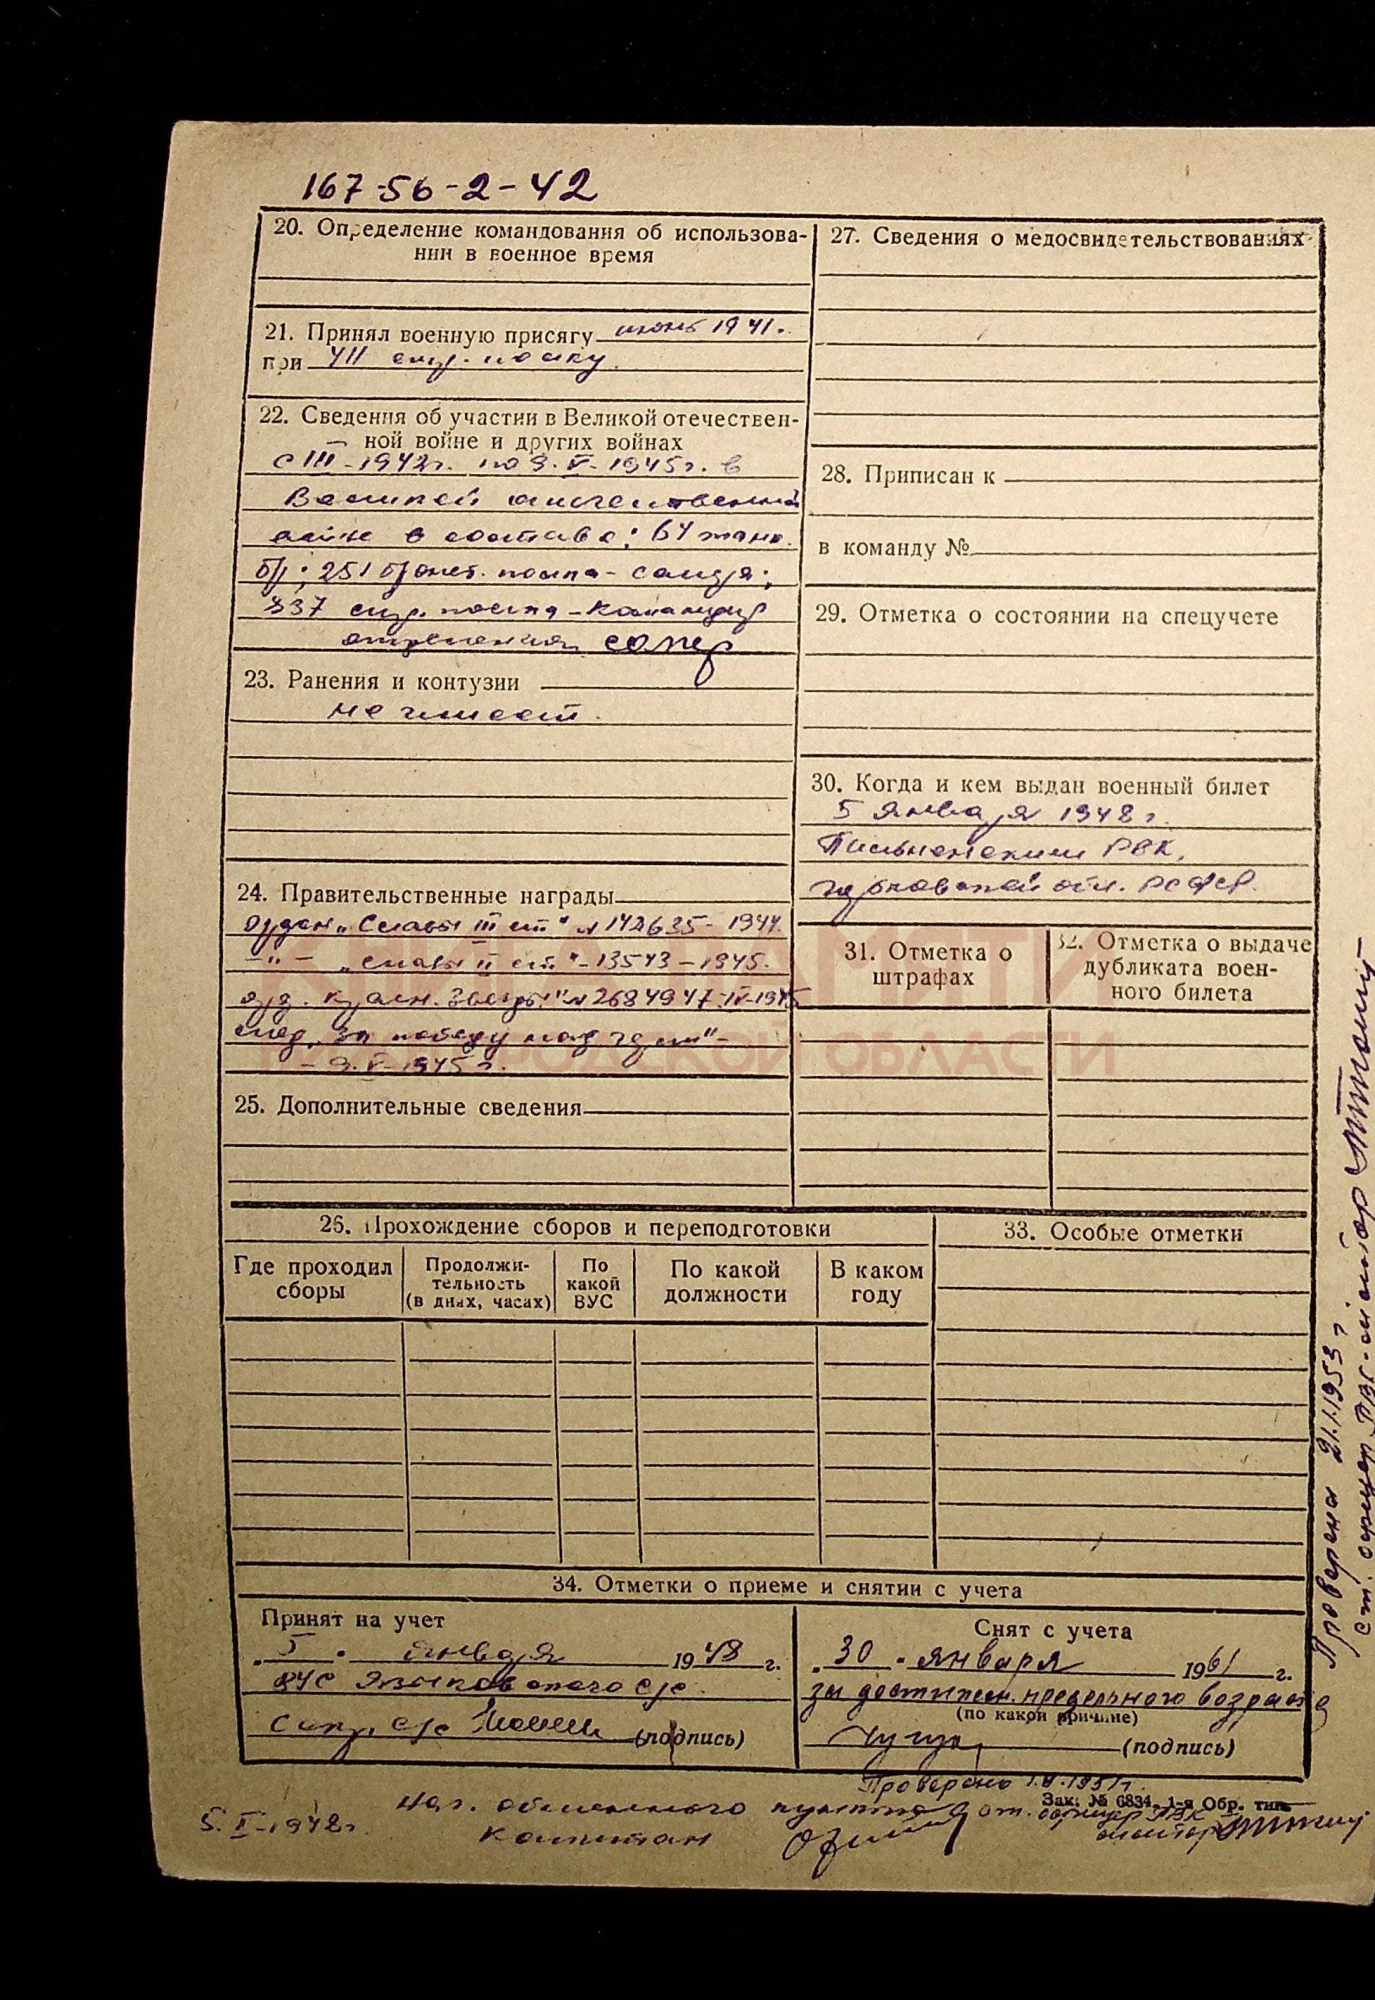 167-56-2-42
20. Определение командования об использова-
нии в военное время
21. Принял военную присягу июнь 1941 г.
при 411 стр. полку
22. Сведения об участии в Великой отечествен-
ной войне и других войнах
с III-1942г. по 9.V-1945г. в
Великой отечественной
войне в составе: 64 танк.
бр; 251
337 стр. полка - командир
отделения сапер
23. Ранения и контузии
не имеет.
24. Правительственные награды
орден „Славы III ст" № 142635 - 1944.
-"- „Славы II ст" - 13543 - 1945.
орд. Красн. Звезды" № 2684947 IV-1945
мед. „За победу над Герм"-
- 9.V-1945 г.
25. Дополнительные сведения
26. Прохождение сборов и переподготовки
Где проходил
сборы
Продолжи-
тельность
(в днях, часах)
По
какой
ВУС
По какой
должности
В каком
году
27. Сведения о медосвидетельствованиях
28. Приписан к
в команду №
29. Отметка о состоянии на спецучете
30. Когда и кем выдан военный билет
5 января 1948 г.
Письменским РВК,
Горьковской обл. РСФСР.
31. Отметка о
штрафах
32. Отметка о выдаче
дубликата воен-
ного билета
33. Особые отметки
34. Отметки о приеме и снятии с учета
Принят на учет
„5" января 1948 г.
ВУС Языковского с/с
с/с
(подпись)
Снят с учета
„30" января 1961 г.
за достижен. предельного возраста
(по какой причине)
(подпись)
Проверено 1.V.1951г.
Зак. № 6834. 1-я Обр. тип.
ст. офицер РВК
майор
5.I-1948г.
Нач. обменного пункта
капитан
Проверена 21.I.1953 г.
ст. офицер РВК - майор
КНИГА ПАМЯТИ
НИЖЕГОРОДСКОЙ ОБЛАСТИ